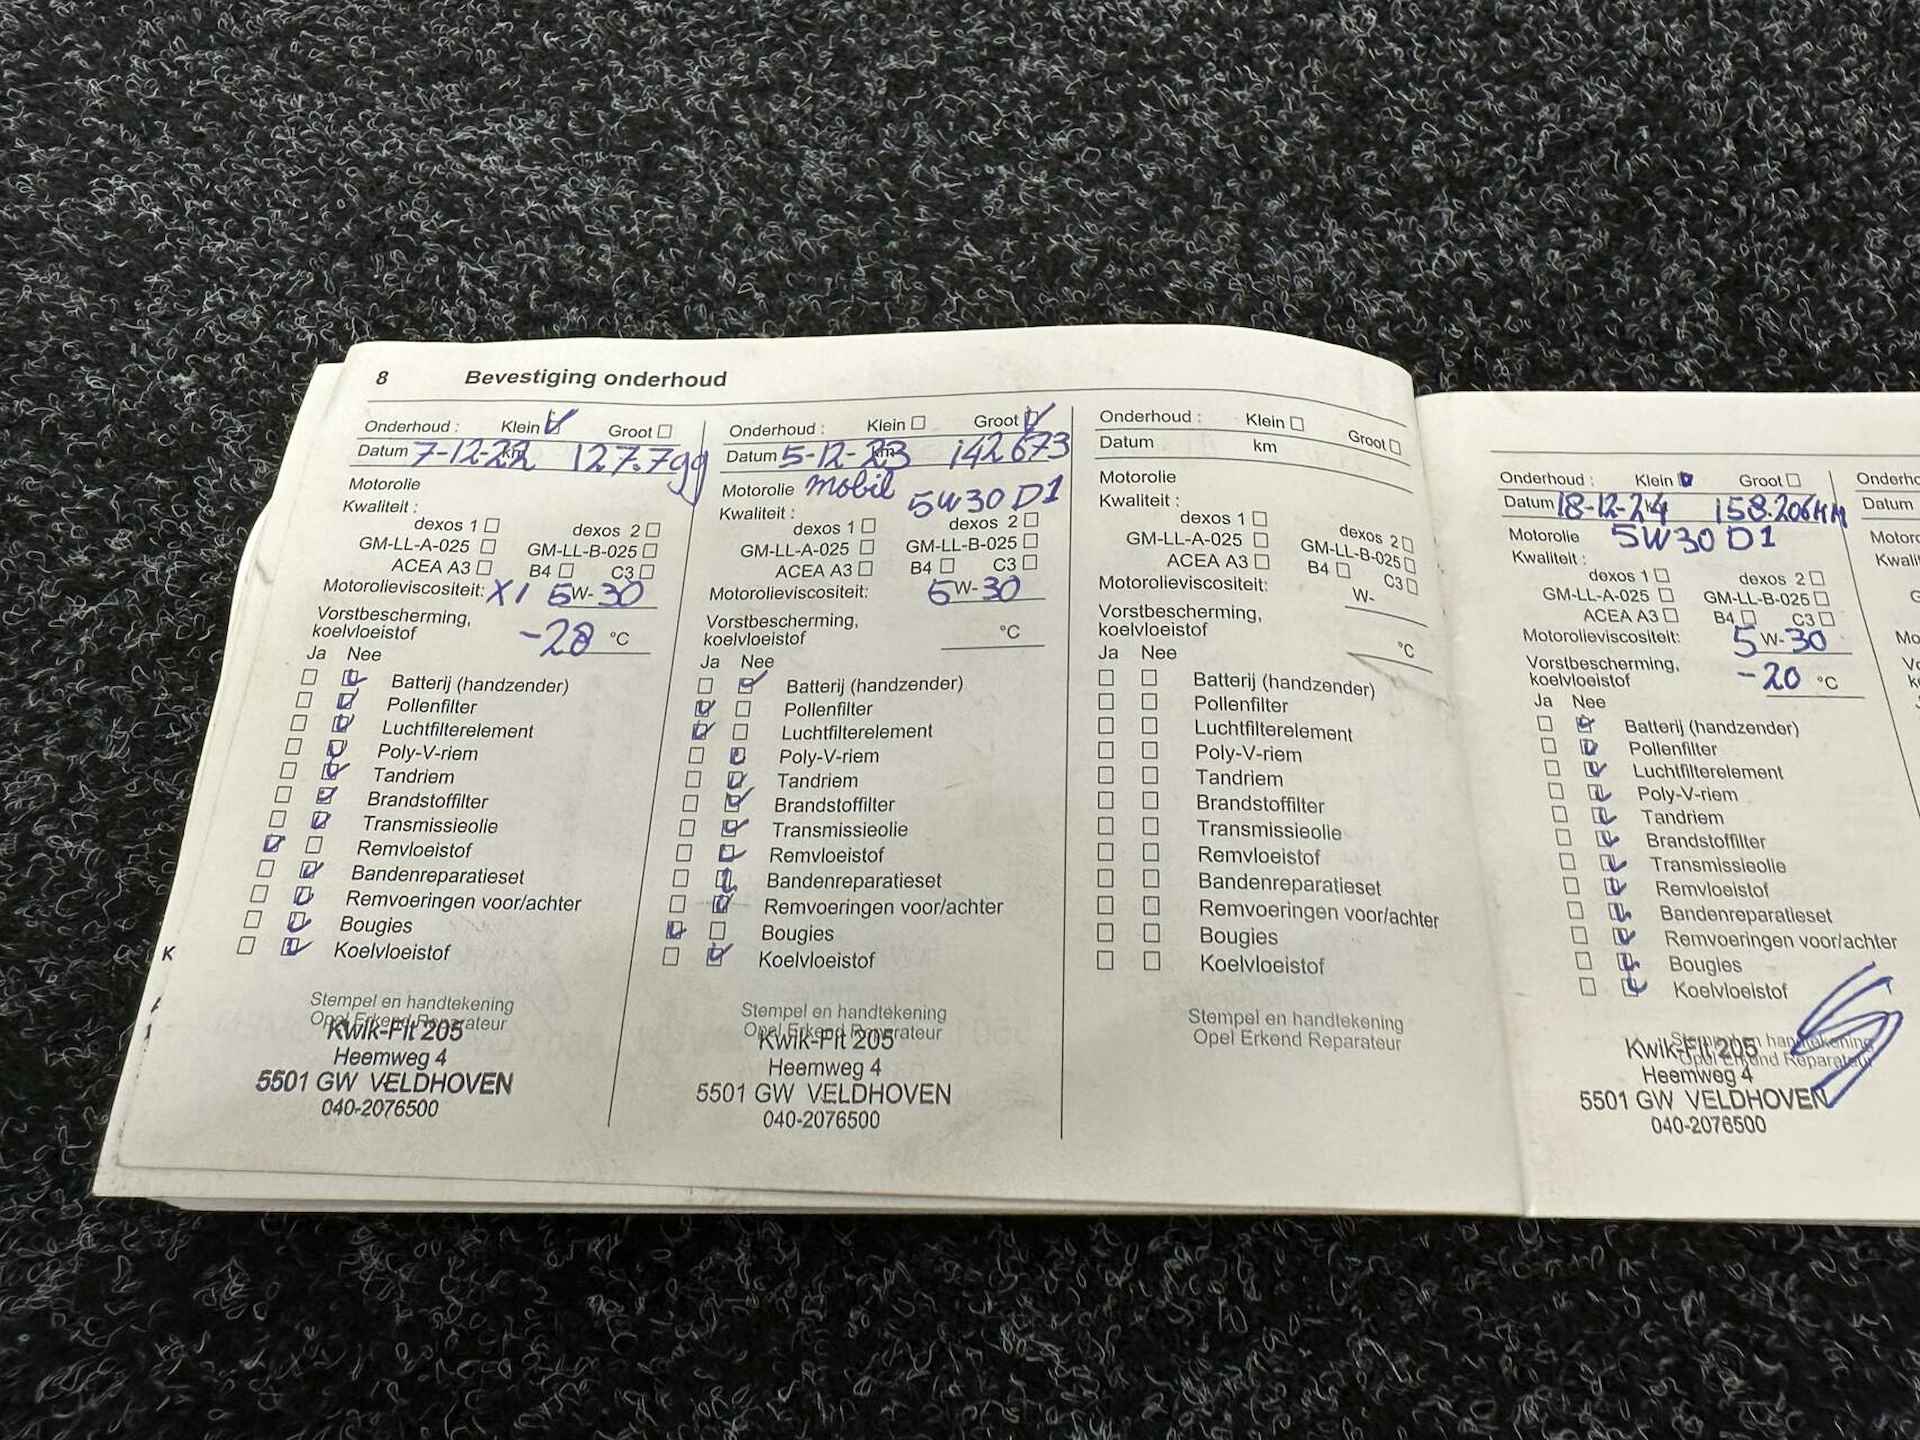 8 Bevestiging onderhoud
Onderhoud : Klein Groot
Datum 7-12-22 km 127.799
Motorolie
Kwaliteit :
dexos 1 dexos 2
GM-LL-A-025 GM-LL-B-025
ACEA A3 B4 C3
Motorolieviscositeit: X1 5W-30
Vorstbescherming,
koelvloeistof -28 °C
Ja Nee
Batterij (handzender)
Pollenfilter
Luchtfilterelement
Poly-V-riem
Tandriem
Brandstoffilter
Transmissieolie
Remvloeistof
Bandenreparatieset
Remvoeringen voor/achter
Bougies
Koelvloeistof
Stempel en handtekening
Opel Erkend Reparateur
Kwik-Fit 205
Heemweg 4
5501 GW VELDHOVEN
040-2076500
Onderhoud : Klein Groot
Datum 5-12-23 km 142673
Motorolie mobil
5W30 D1
Kwaliteit :
dexos 1 dexos 2
GM-LL-A-025 GM-LL-B-025
ACEA A3 B4 C3
Motorolieviscositeit: 5W-30
Vorstbescherming,
koelvloeistof °C
Ja Nee
Batterij (handzender)
Pollenfilter
Luchtfilterelement
Poly-V-riem
Tandriem
Brandstoffilter
Transmissieolie
Remvloeistof
Bandenreparatieset
Remvoeringen voor/achter
Bougies
Koelvloeistof
Stempel en handtekening
Opel Erkend Reparateur
Kwik-Fit 205
Heemweg 4
5501 GW VELDHOVEN
040-2076500
Onderhoud : Klein Groot
Datum km
Motorolie
Kwaliteit :
dexos 1 dexos 2
GM-LL-A-025 GM-LL-B-025
ACEA A3 B4 C3
Motorolieviscositeit: W-
Vorstbescherming,
koelvloeistof °C
Ja Nee
Batterij (handzender)
Pollenfilter
Luchtfilterelement
Poly-V-riem
Tandriem
Brandstoffilter
Transmissieolie
Remvloeistof
Bandenreparatieset
Remvoeringen voor/achter
Bougies
Koelvloeistof
Stempel en handtekening
Opel Erkend Reparateur
Onderhoud : Klein Groot
Datum 18-12-24 km 158.206KM
Motorolie 5W30 D1
Kwaliteit :
dexos 1 dexos 2
GM-LL-A-025 GM-LL-B-025
ACEA A3 B4 C3
Motorolieviscositeit: 5W-30
Vorstbescherming,
koelvloeistof -20 °C
Ja Nee
Batterij (handzender)
Pollenfilter
Luchtfilterelement
Poly-V-riem
Tandriem
Brandstoffilter
Transmissieolie
Remvloeistof
Bandenreparatieset
Remvoeringen voor/achter
Bougies
Koelvloeistof
Stempel en handtekening
Opel Erkend Reparateur
Kwik-Fit 205
Heemweg 4
5501 GW VELDHOVEN
040-2076500
Datum